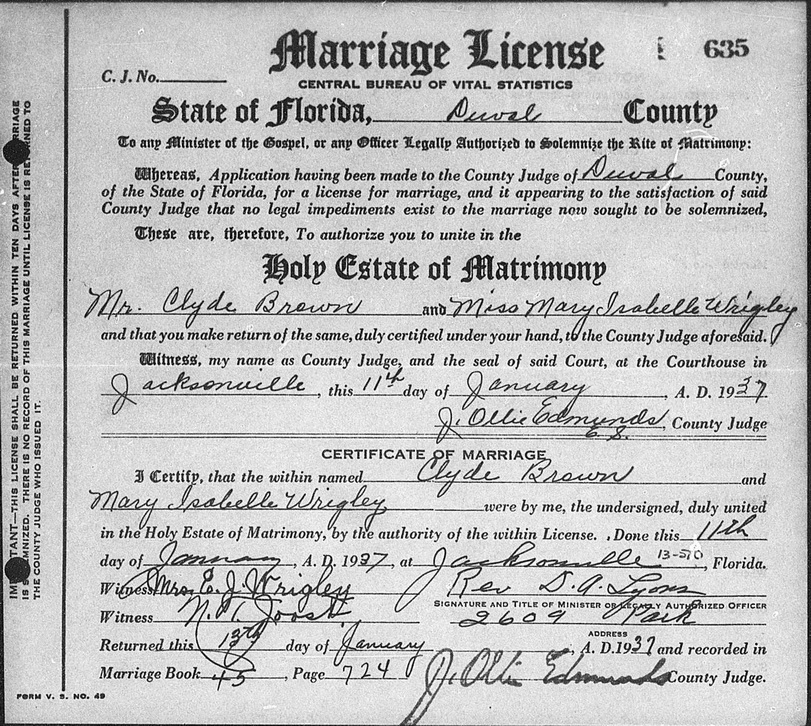 Marriage License
635
C. J. No.
CENTRAL BUREAU OF VITAL STATISTICS
State of Florida, Duval County
To any Minister of the Gospel, or any Officer Legally Authorized to Solemnize the Rite of Matrimony:
Whereas, Application having been made to the County Judge of Duval County,
of the State of Florida, for a license for marriage, and it appearing to the satisfaction of said
County Judge that no legal impediments exist to the marriage now sought to be solemnized,
These are, therefore, To authorize you to unite in the
Holy Estate of Matrimony
Mr. Clyde Brown and Miss Mary Isabelle Wrigley
and that you make return of the same, duly certified under your hand, to the County Judge aforesaid.
Witness, my name as County Judge, and the seal of said Court, at the Courthouse in
Jacksonville, this 11th day of January, A. D. 1937
J. Ollie Edmunds, County Judge
CERTIFICATE OF MARRIAGE
I Certify, that the within named Clyde Brown and
Mary Isabelle Wrigley were by me, the undersigned, duly united
in the Holy Estate of Matrimony, by the authority of the within License. Done this 11th
day of January, A. D. 1937, at Jacksonville 13-510, Florida.
Witness Mrs. E. J. Wrigley Rev D. A. Lyons
SIGNATURE AND TITLE OF MINISTER OR LEGALLY AUTHORIZED OFFICER
Witness N. T. Joost 2609 Park
ADDRESS
Returned this 13th day of January, A. D. 1937 and recorded in
Marriage Book 45, Page 724 J. Ollie Edmunds County Judge.
FORM V. S. NO. 49
THIS LICENSE SHALL BE RETURNED WITHIN TEN DAYS AFTER MARRIAGE
THERE IS NO RECORD OF THIS MARRIAGE UNTIL LICENSE IS RETURNED TO
THE COUNTY JUDGE WHO ISSUED IT.